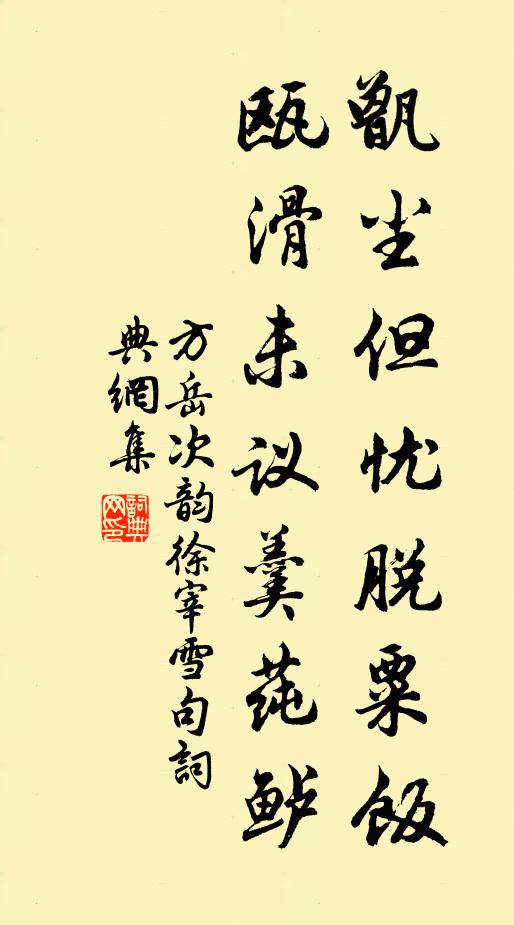 甑尘但忧脱粟饭
瓯滑未议羹莼鲈
方岳次韵徐宰雪句詞
典網集
詞典网印